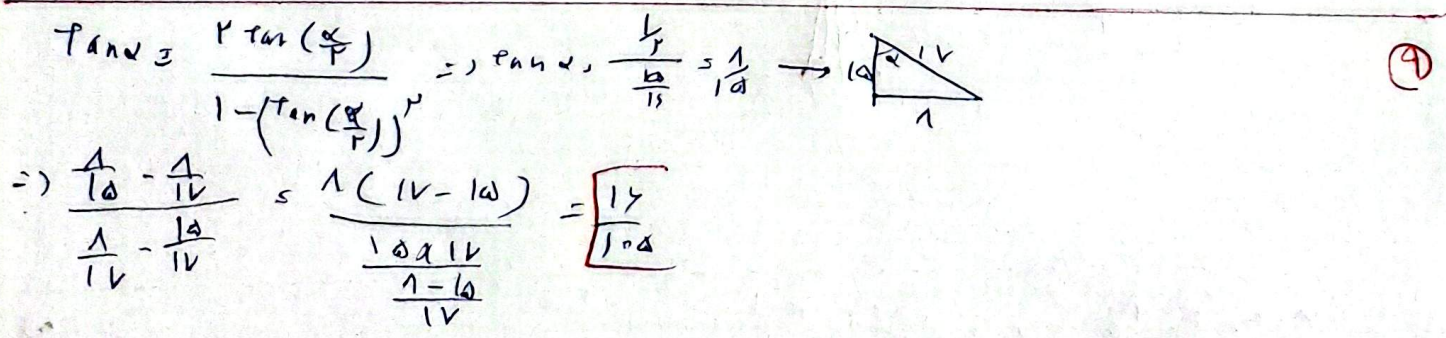 tan α = ۲ tan (α/۲) / ۱ - (tan (α/۲))^۲ => tan α = (۱/۲) / (۱۵/۱۶) = ۸/۱۵ → ۱۵ α ۱۷ ۸ ۹
=> (۸/۱۵ - ۸/۱۷) / (۸/۱۷ - ۱۵/۱۷) = (۸(۱۷ - ۱۵) / ۱۵×۱۷) / ((۸ - ۱۵) / ۱۷) = ۱۶/۱۰۵